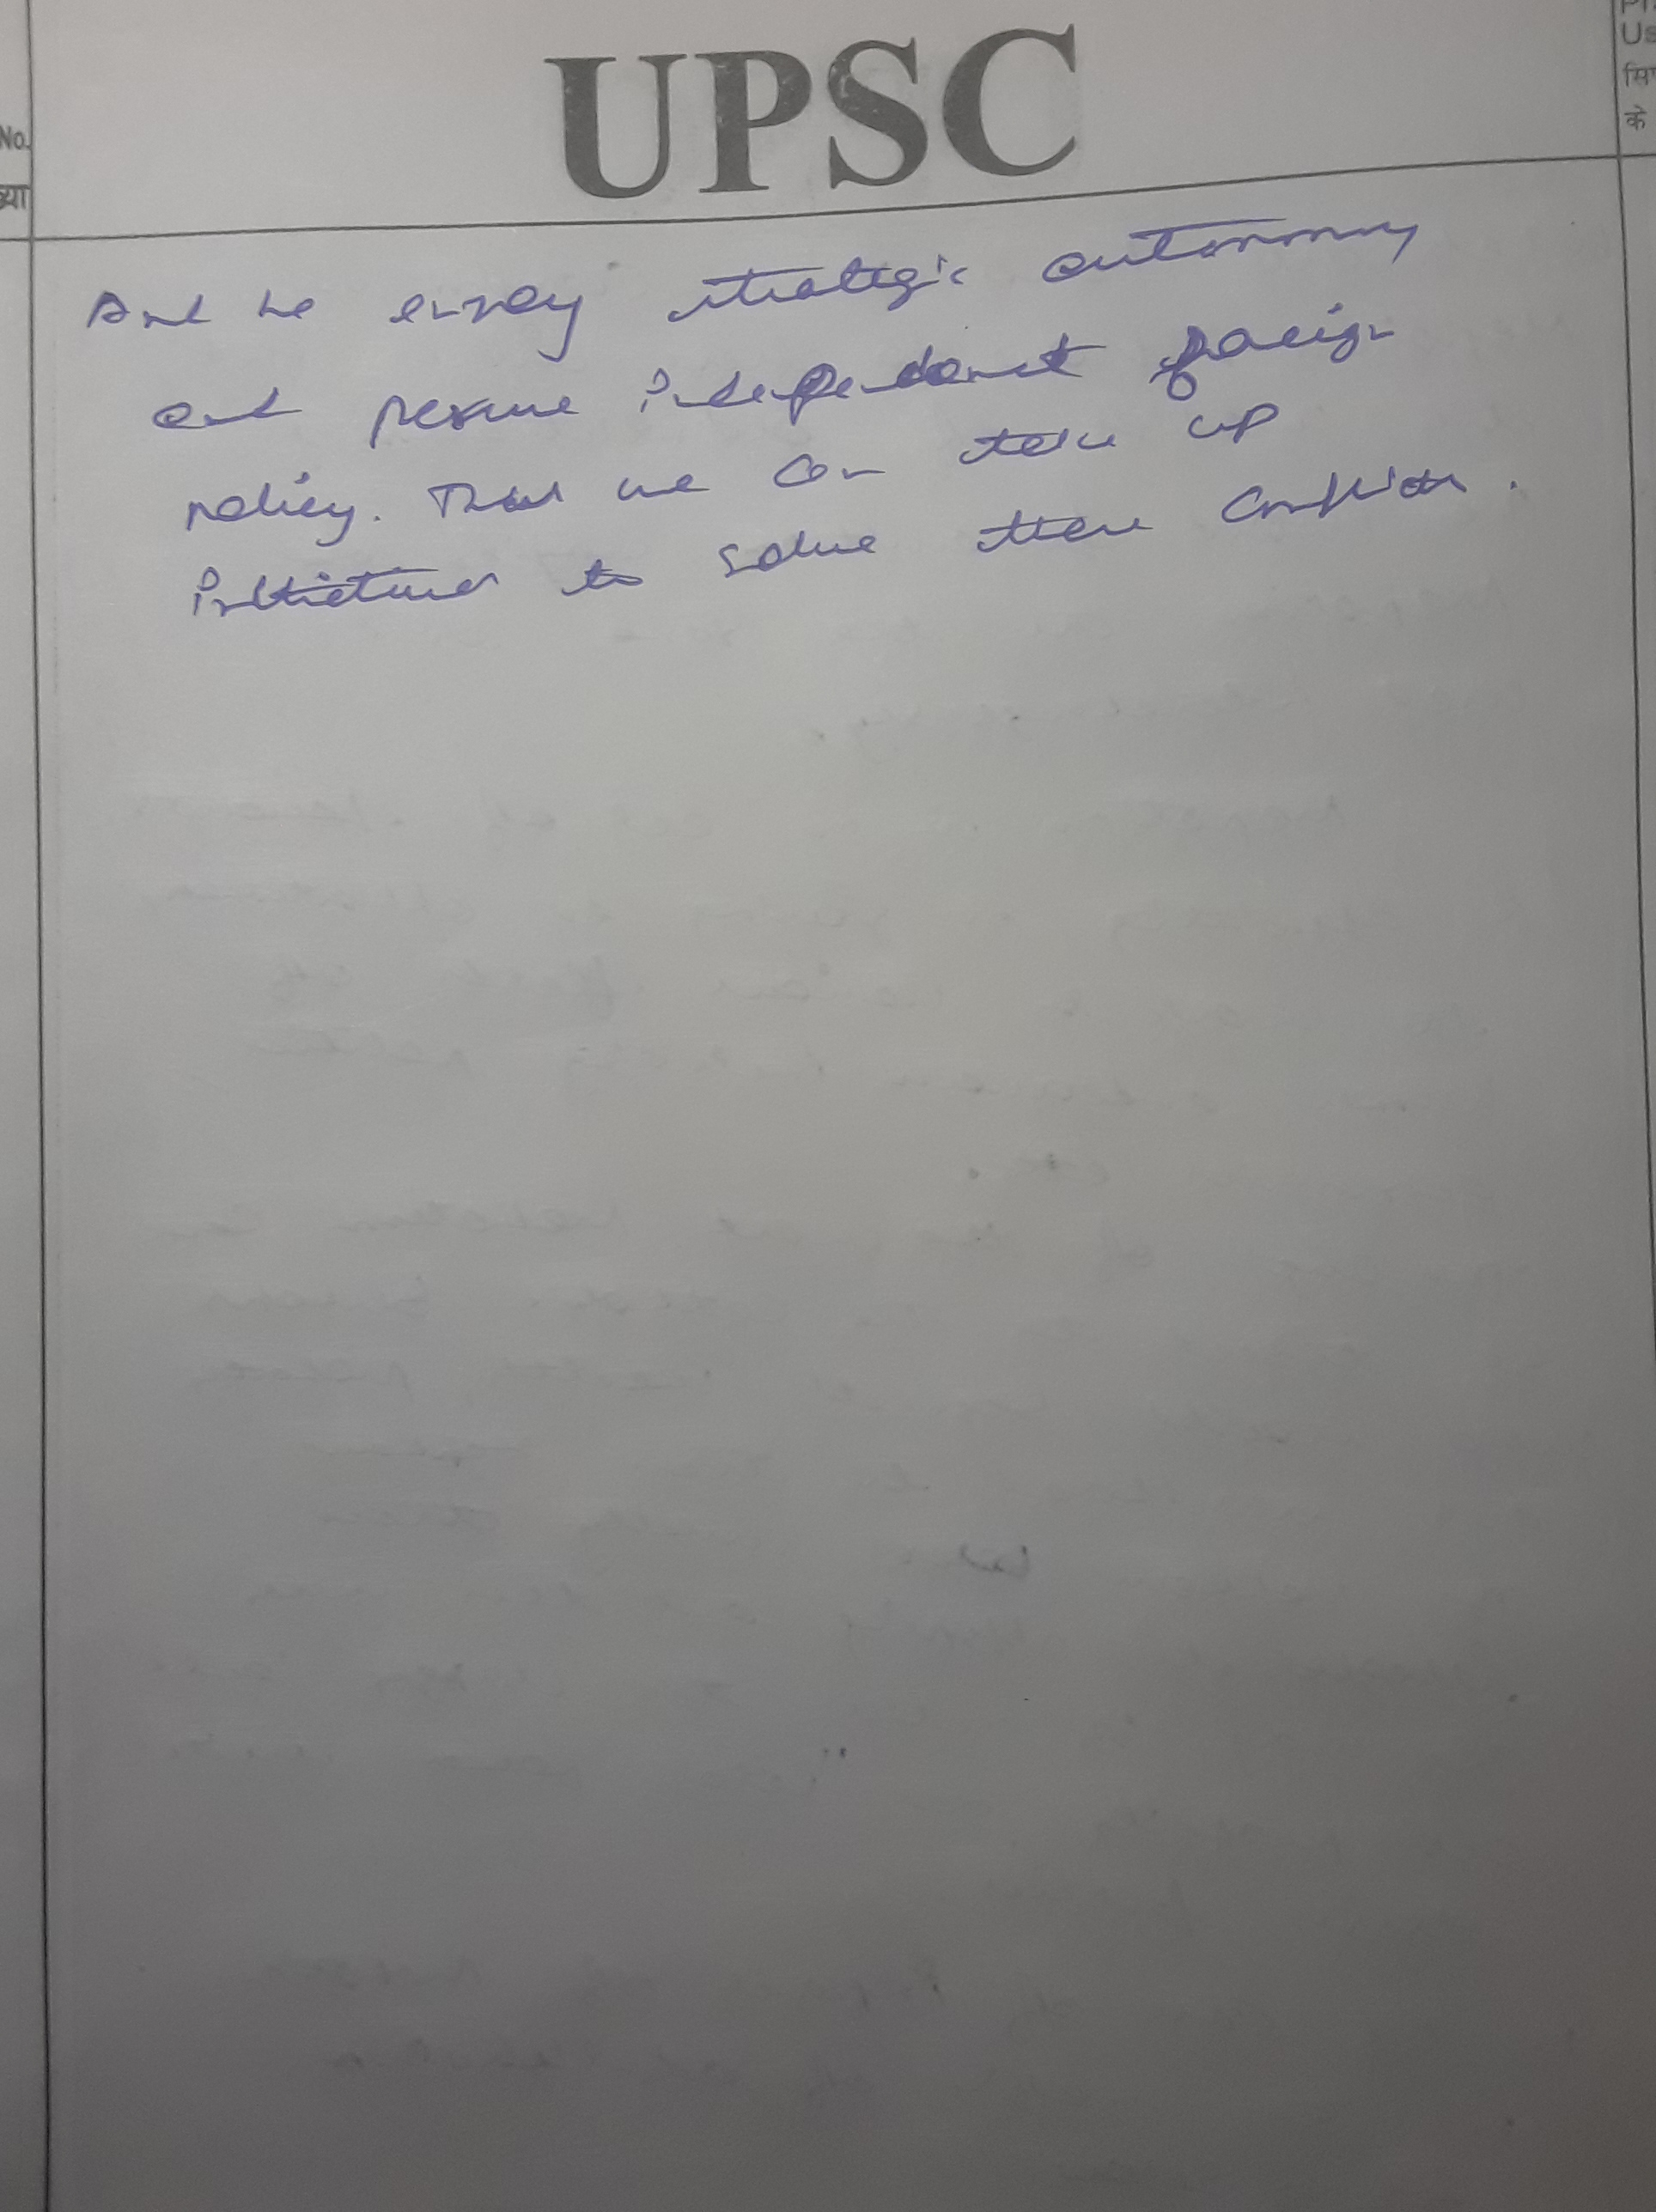 No.
ख्या
UPSC
Us
के
And we enjoy strategic autonomy
and persue independent foreign
policy. Thus we can take up
initiatives to solve these conflicts.